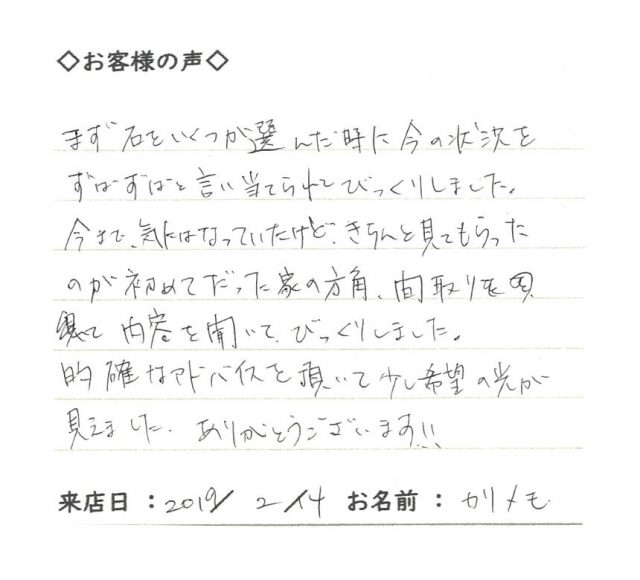 ◇お客様の声◇
まず石をいくつか選んだ時に今の状況を
ずばずばと言い当てられてびっくりしました。
今まで、気にはなっていたけど、きちんと見てもらった
のが初めてだった家の方角、間取りを
内容を聞いて、びっくりしました。
的確なアドバイスを頂いて少し希望の光が
見えました。ありがとうございます!!
来店日 : 2019/ 2/14 お名前 : カリメモ